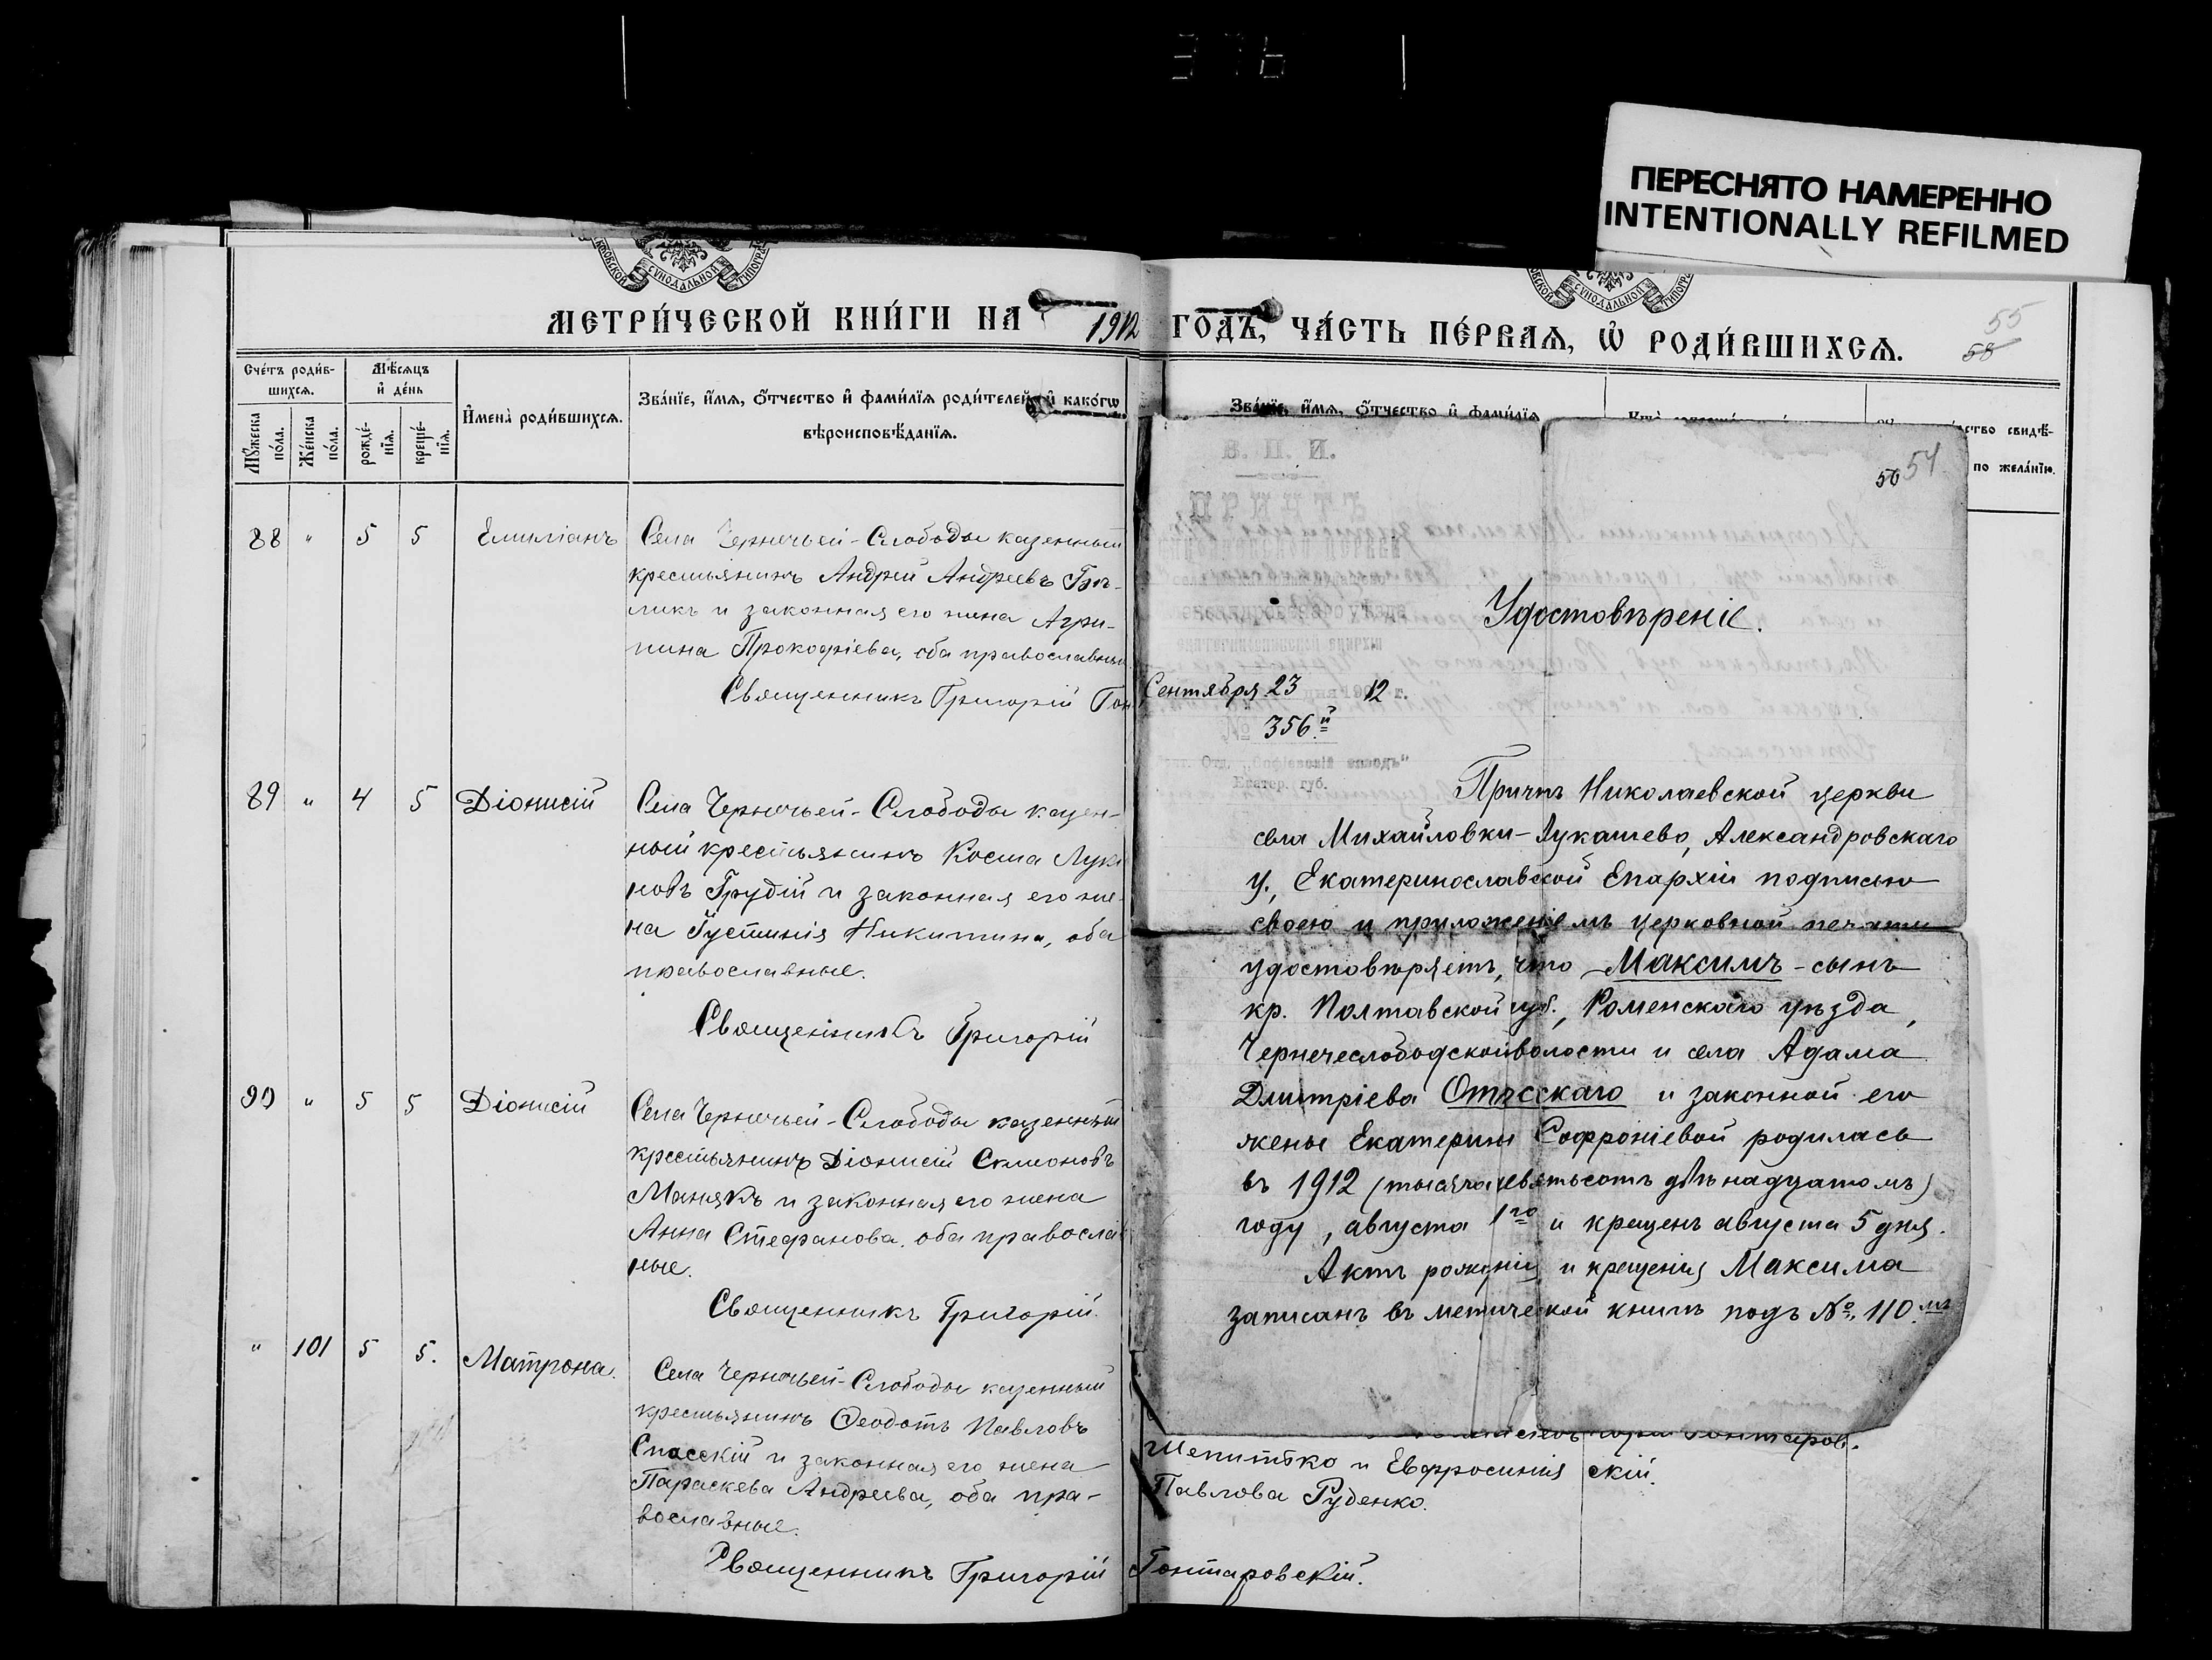 376
ПЕРЕСНЯТО НАМЕРЕННО
INTENTIONALLY REFILMED
СѴНОДАЛЬНОЙ
СѴНОДАЛЬНОЙ
МЕТРИ́ЧЕСКОЙ КНИ́ГИ НА 1912 ГОДЪ, ЧА́СТЬ ПЕ́РВАЯ, Ѡ҆ РОДИ́ВШИХСЯ.
55
58
Сче́тъ роди́в-
шихся.
Мѣ́сяцъ
и҆ де́нь
Мꙋ́жеска по́ла.
Же́нска по́ла.
рожде́-нїя.
креще́-нїя.
И҆мена̀ роди́вшихся.
Зва́нїе, и҆́мя, ѻ҆́тчество и҆ фами́лїя роди́телей, и҆ како́гѡ
вѣроисповѣ́данїя.
88 " 5 5 Емиліанъ
Села Чернечьей-Слободы казенный
крестьянинъ Андрей Андреевъ
и законная его жена Агри-
пина Прокофіева, оба православные
Священникъ Григорій
89 " 4 5 Діонисій
Села Чернечьей-Слободы казен-
ный крестьянинъ Косма
новъ Грудій и законная его же-
на Іустинія Никитина, оба
православные.
Священникъ Григорій
90 " 5 5 Діонисій
Села Чернечьей-Слободы казенный
крестьянинъ Діонисій Симоновъ
Манякъ и законная его жена
Анна Стефанова, оба православ
ные.
Священникъ Григорій.
" 101 5 5. Матрона.
Села Чернечьей-Слободы казенный
крестьянинъ Ѳеодотъ Павловъ
Спасскій и законная его жена
Параскева Андреева, оба пра-
вославные.
Священникъ Григорій Гонтаровскій.
Зва́нїе, и҆́мя, ѻ҆́тчество и҆ фами́лїя
свидѣ́-
по жела́нїю.
В. П. И.
ПРИЧТЪ
56 54
Удостовѣреніе.
Сентября 23 дня 1912 г.
№ 356й
„Софіевскій заводъ“
Екатер. губ.
Причтъ Николаевской церкви
села Михайловки-Лукашево, Александровскаго
у., Екатеринославской Епархіи подписью
своею и приложеніемъ церковной печати
удостовѣряетъ, что Максимъ - сынъ
кр. Полтавской губ., Роменскаго уѣзда,
Чернечеслободской волости и села Адама
Дмитріева Отъсскаго и законной его
жены Екатерины Софроніевой родилась
въ 1912 (тысяча девятьсотъ двѣнадцатомъ)
году, августа 1го и крещенъ августа 5 дня.
Актъ рожденія и крещенія Максима
записанъ въ метической книгѣ подъ №. 110.мъ
Шепитько и Евфросинія скій.
Павлова Руденко.